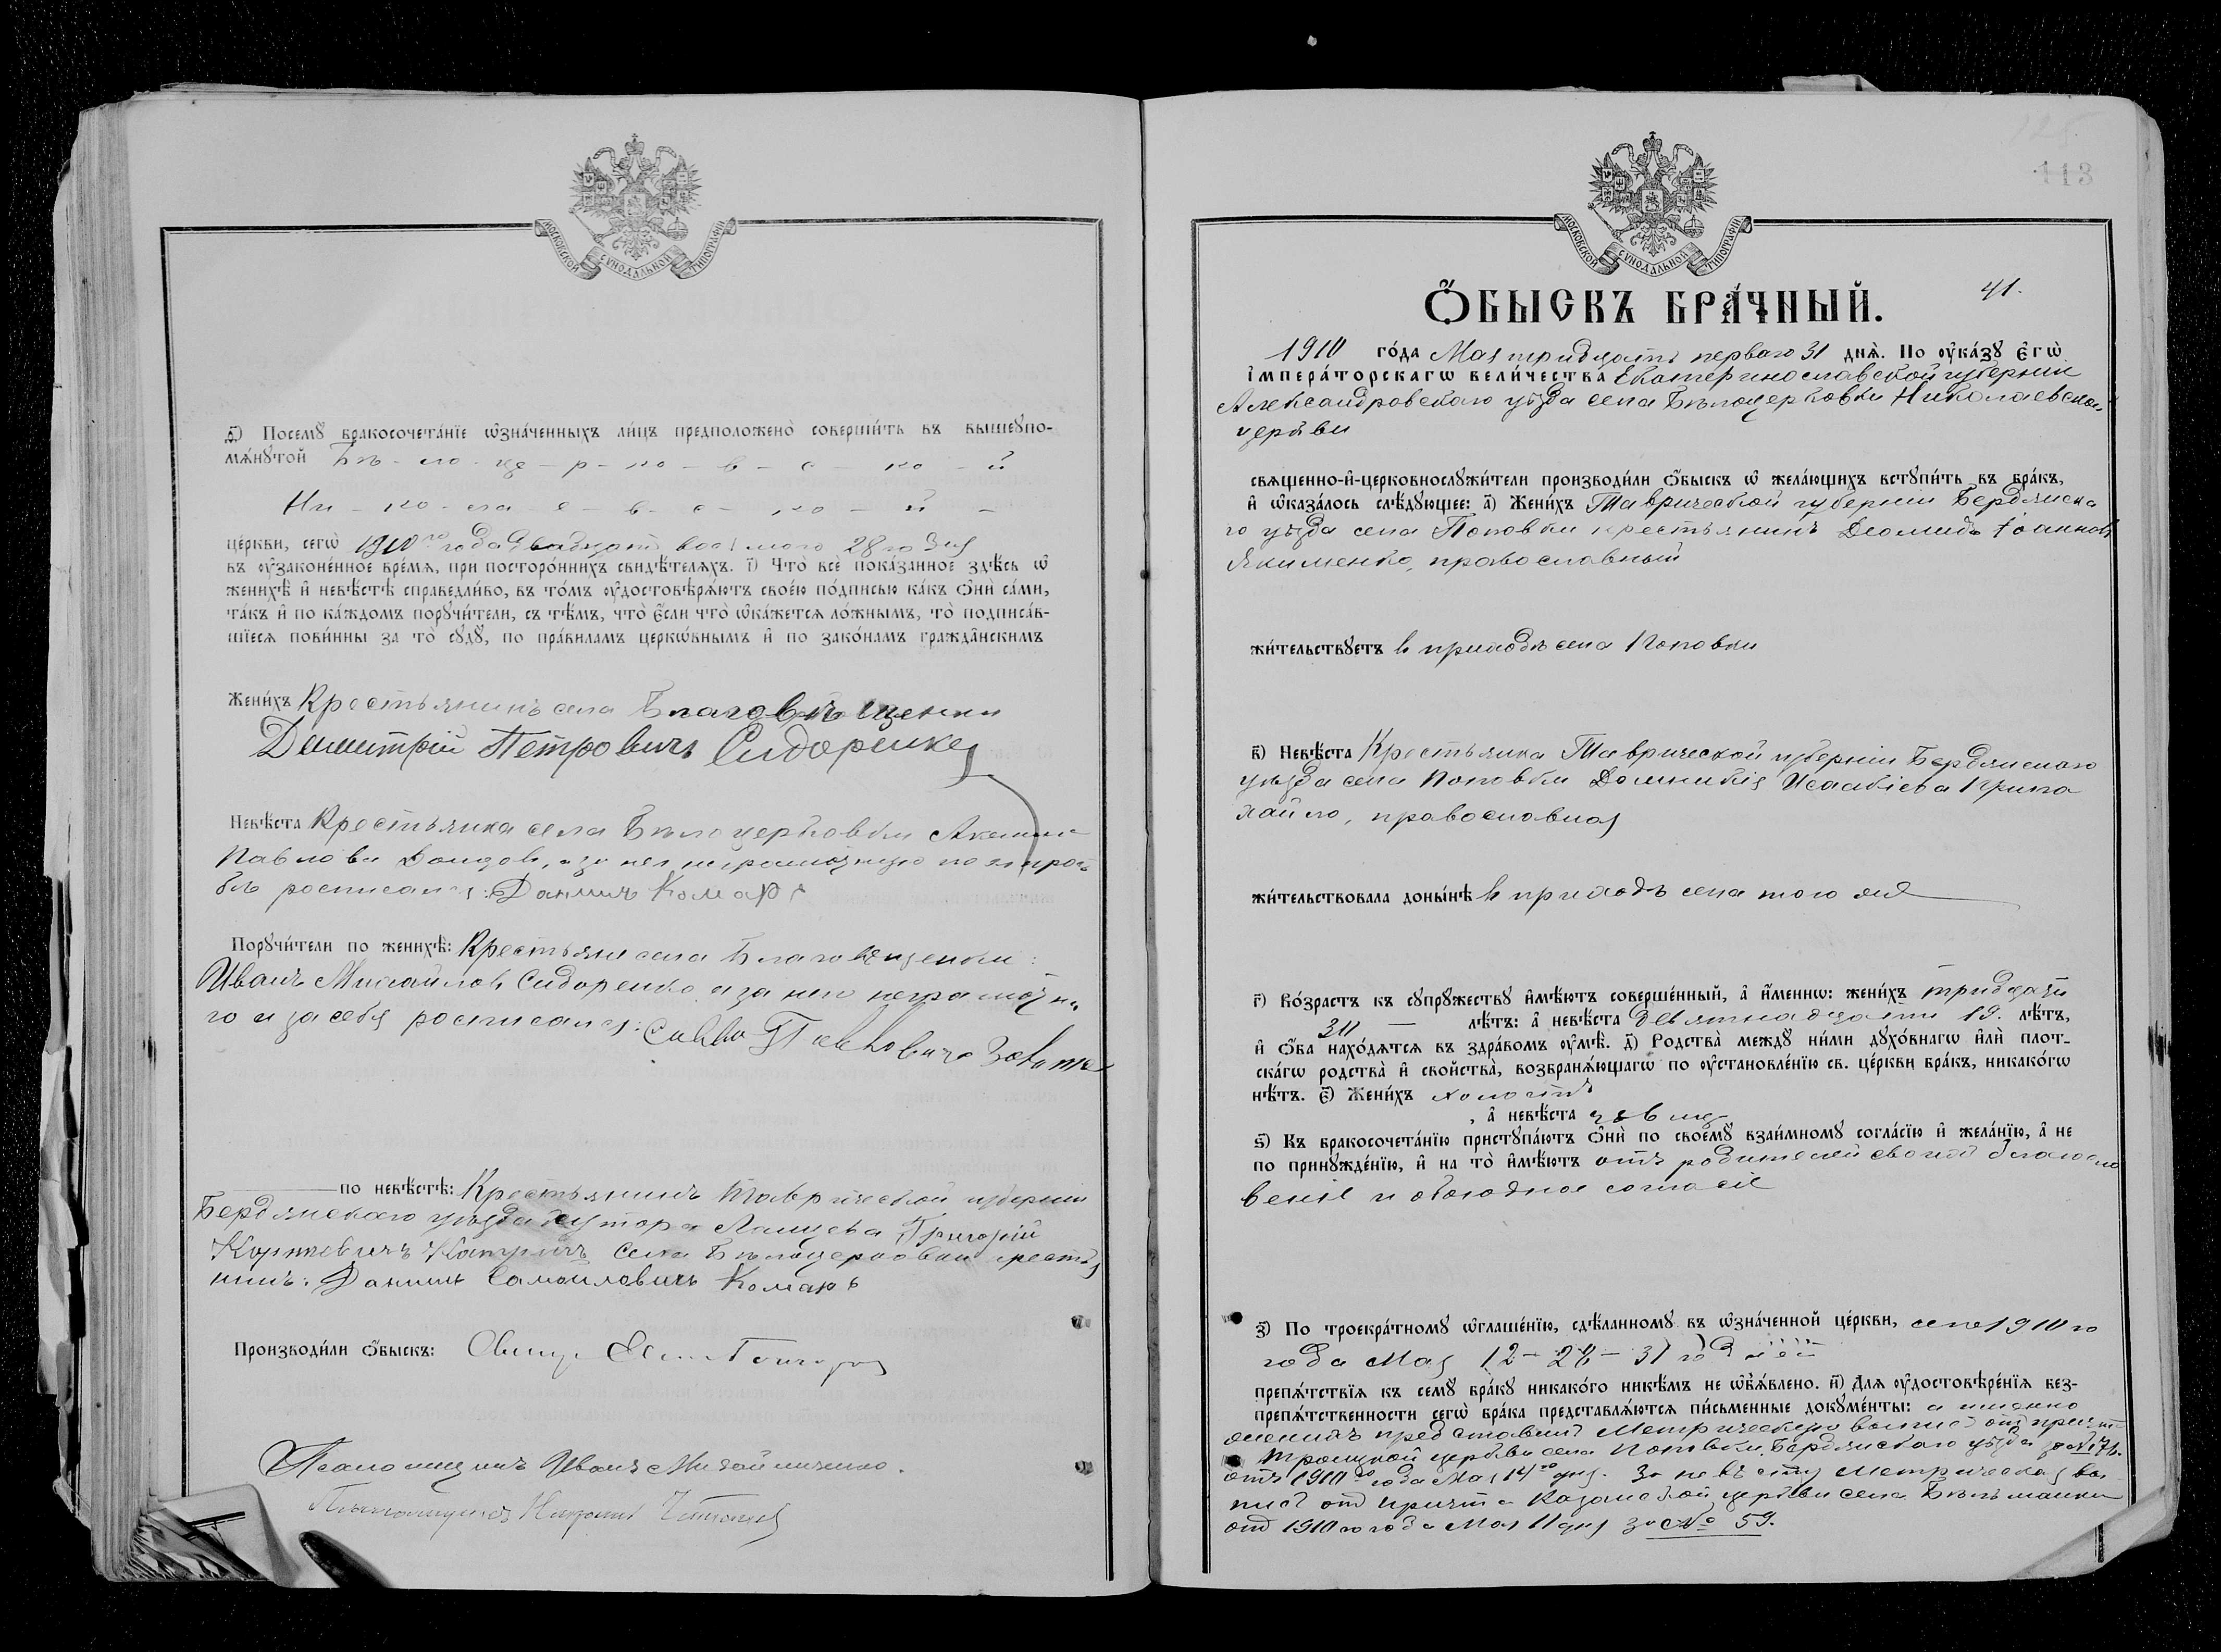 МОСКОВСКОЙ СѴНОДАЛЬНОЙ ТИПОГРАФІИ
ѳ҃) Посемꙋ̀ бракосочета́нїе ѡ҆зна́ченныхъ ли́цъ предположено̀ соверши́ть въ вышеꙋпо-
мѧ́нꙋтой Бѣ - ло - це - р - ко - в - с - ко - й
Ни - ко - ла - е - в - с - ко - й -
це́ркви, сегѡ̀ 1910 го года двадцать восьмого 28 го дня
въ ᲂу҆законе́нное вре́мѧ, при посторо́ннихъ свидѣ́телѧхъ. і҃) Что̀ всѐ пока́занное здѣ́сь ѡ҆
женихѣ̀ и҆ невѣ́стѣ справедли́во, въ то́мъ ᲂу҆достовѣрѧ́ютъ свое́ю по́дписью ка́къ ѻ҆нѝ са́ми,
та́къ и҆ по ка́ждомъ порꙋчи́тели, съ тѣ́мъ, что̀ є҆́сли что̀ ѡ҆ка́жетсѧ ло́жнымъ, то̀ подписа́в-
шїесѧ пови́нны за то̀ сꙋдꙋ̀, по пра́виламъ церкѡ́внымъ и҆ по зако́намъ гражда́нскимъ
Жени́хъ Крестьянинъ села Благовѣщенки
Димитрій Петровичъ Сидоренко
Невѣ́ста Крестьянка села Бѣлоцерковки Акилина
Павлова Донцовъ, а за нея неграмотную по ея прось
бѣ росписался: Данилъ Комаръ
Порꙋчи́тели по женихѣ̀: Крестьяне села Благовѣщенки:
Иванъ Михайловъ Сидоренко а за него неграмотна
го и за себя росписался: Савва Павловичъ
по невѣ́стѣ: Крестьянинъ Таврической губерніи
Бердянскаго уѣзда хутора Григорій
села Бѣлоцерковки крестья
нинъ: Данилъ Самойловичъ Комаръ
Производи́ли ѻ҆́быскъ: Свящ.
Псаломщикъ Иванъ Михайличенко.
Псаломщикъ
113
МОСКОВСКОЙ СѴНОДАЛЬНОЙ ТИПОГРАФІИ
41.
Ѻ҆́БЫСКЪ БРА́ЧНЫЙ.
1910 го́да Мая тридцать перваго 31 днѧ̀. По ᲂу҆ка́зꙋ Є҆гѡ̀
І҆мпера́торскагѡ вели́чества Екатеринославской губерніи
Александровскаго уѣзда села Бѣлоцерковки Николаевской
церкви
свѧщенно-и҆-церковнослꙋжи́тели производи́ли ѻ҆́быскъ ѡ҆ жела́ющихъ встꙋпи́ть въ бра́къ,
и҆ ѡ҆каза́лось слѣ́дꙋющее: а҃) Жени́хъ Таврической губерніи Бердянска
го уѣзда села Поповки крестьянинъ Деомидъ Іоанновъ
Якименко, православный
жи́тельствꙋетъ въ приходѣ села Поповки
в҃) Невѣ́ста Крестьянка Таврической губерніи Бердянскаго
уѣзда села Поповки Домникія Исаакіева Крина
хайло, православная
жи́тельствовала доны́нѣ въ приходѣ села того же
г҃) Во́зрастъ къ сꙋпрꙋ́жествꙋ и҆мѣ́ютъ соверше́нный, а҆ и҆́меннѡ: жени́хъ тридцати
30 — лѣ́тъ: а҆ невѣ́ста девятнадцати 19. лѣ́тъ,
и҆ ѻ҆́ба нахо́дѧтсѧ въ здра́вомъ ᲂу҆мѣ̀. д҃) Родства̀ междꙋ ни́ми дꙋхо́внагѡ и҆лѝ плот-
ска́гѡ родства̀ и҆ сво́йства̀, возбранѧ́ющагѡ по ᲂу҆становле́нїю св. це́ркви бра́къ, никако́гѡ
нѣ́тъ. є҃) Жени́хъ холостъ
, а҆ невѣ́ста дѣвица
ѕ҃) Къ бракосочета́нїю пристꙋпа́ютъ ѻ҆нѝ по своемꙋ̀ взаи́мномꙋ согла́сїю и҆ жела́нїю, а҆ не
по принꙋжде́нїю, и҆ на то̀ и҆мѣ́ютъ отъ родителей своихъ благосло
веніе и обоюдное согласіе
з҃) По троекра́тномꙋ ѡ҆глаше́нїю, сдѣ́ланномꙋ въ ѡ҆зна́ченной це́ркви, сего 1910 го
года Мая 12 - 28 - 31 го дней
препѧ́тствїѧ къ семꙋ̀ бра́кꙋ никако́го никѣ́мъ не ѡ҆б̾ѧ́влено. и҃) Длѧ ᲂу҆достовѣре́нїѧ без-
препѧ́тственности сегѡ̀ бра́ка представлѧ́ютсѧ пи́сьменные докꙋме́нты: а именно
женихъ представилъ Метрическую выпись отъ причта
Троицкой церкви села Поповки, Бердянскаго уѣзда за №
отъ 1910 го года Мая 14 го дня. За невѣсту Метрическая вы
пись отъ причта Казанской церкви села Бѣльманки
отъ 1910 го года Мая 11 дня за № 59.